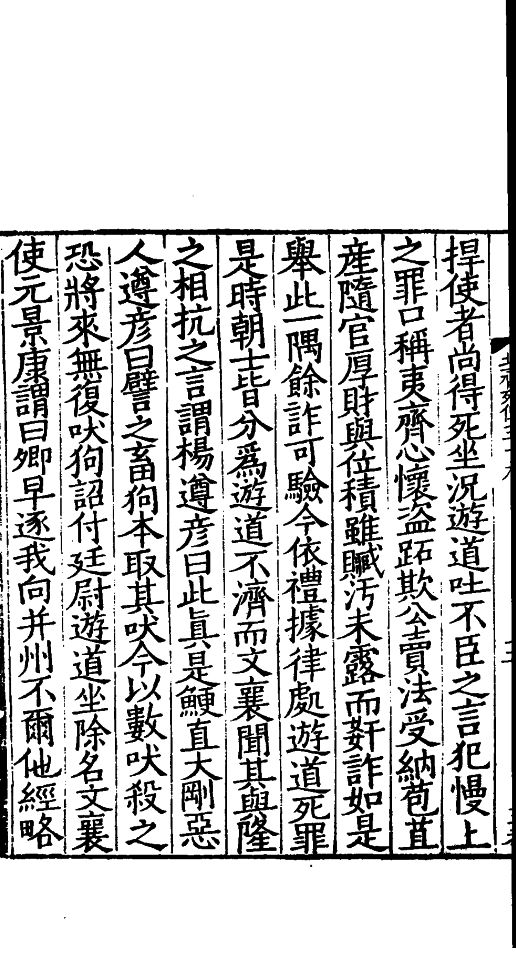 捍使者尚得死坐況遊道吐不臣之言犯慢上
之罪口稱夷齊心懷盗跖欺公賣法受納苞苴
産隨官厚財與位積雖贓汚未露而姧詐如是
舉此一隅餘詐可驗今依禮據律處遊道死罪
是時朝士皆分爲遊道不濟而文襄聞其與隆
之相抗之言謂楊遵彦曰此真是鯁直大剛惡
人遵彦曰譬之畜狗本取其吠今以數吠殺之
恐將來無復吠狗詔付廷尉遊道坐除名文襄
使元景康謂曰卿早逐我向并州不爾他經略